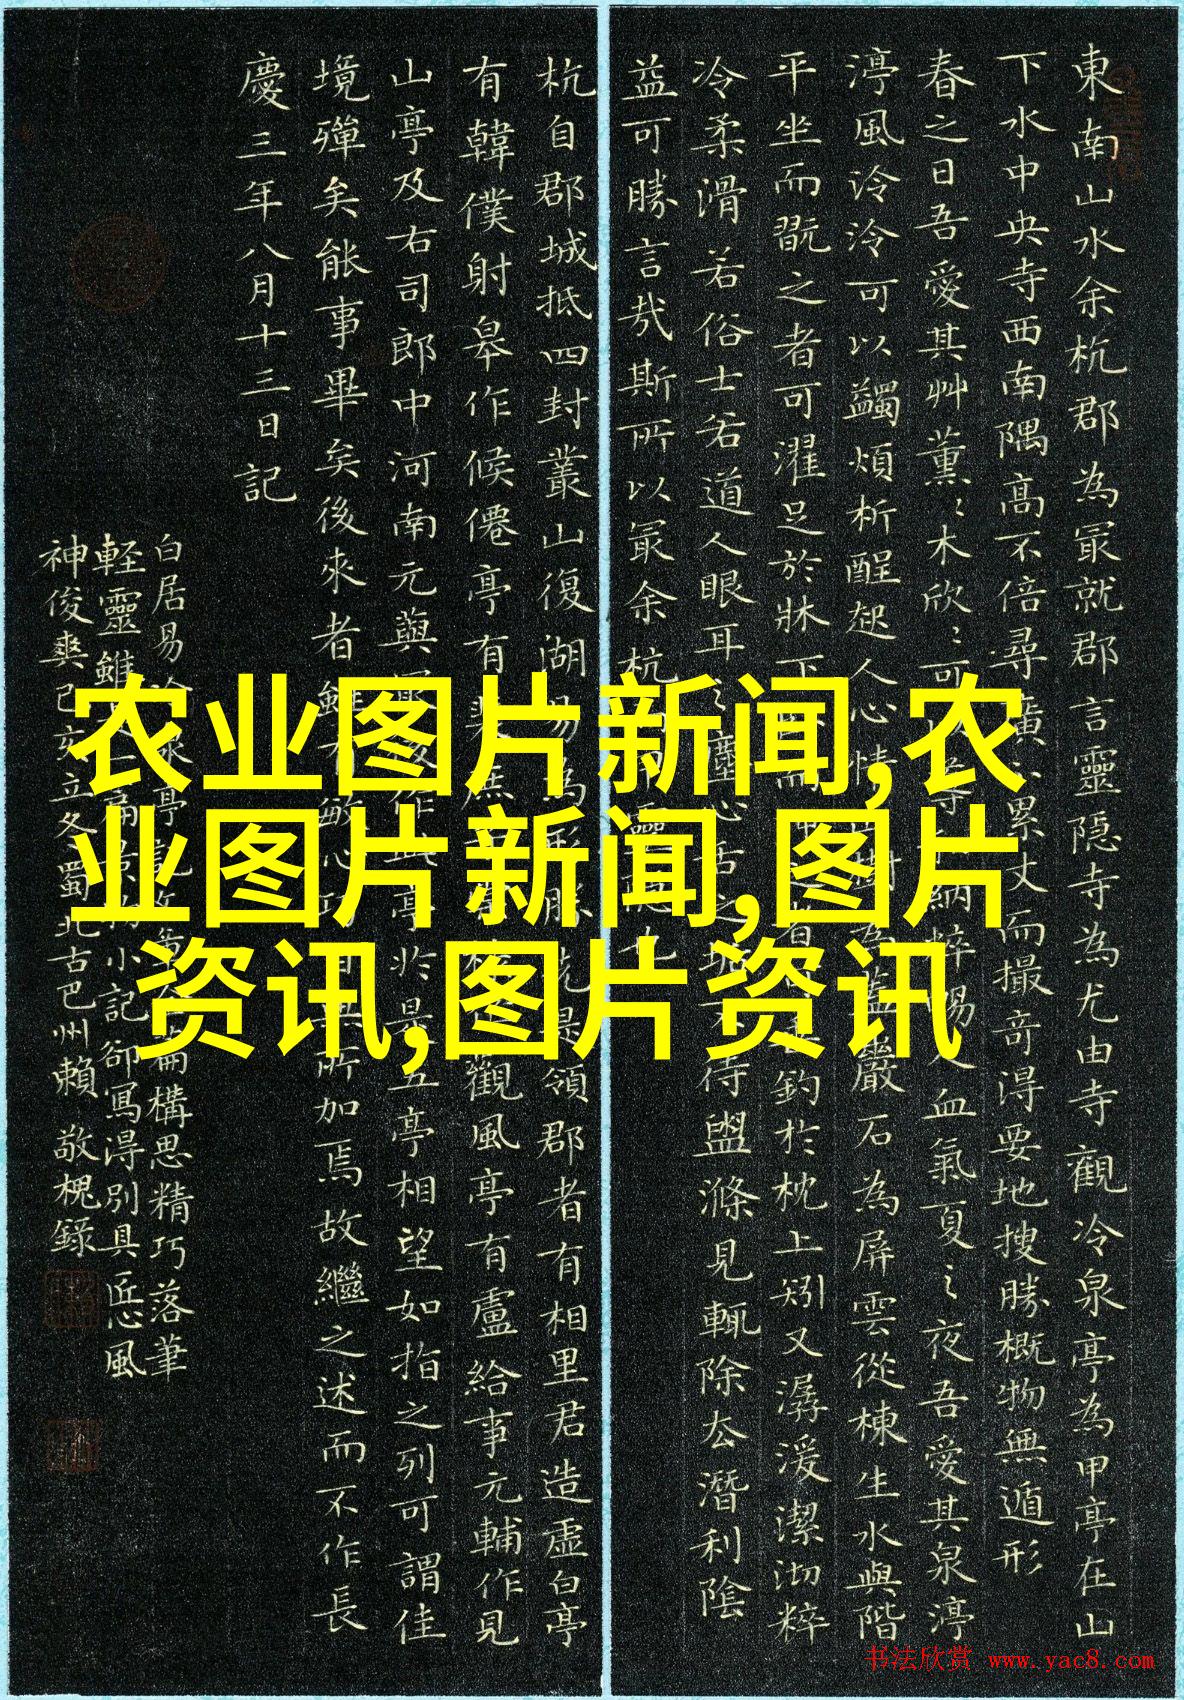 東南山水余杭郡為冣就郡言靈隐寺為尤由寺觀冷泉亭為甲亭在山
下水中央寺西南隅高不倍尋廣不累丈而撮奇得要地搜勝概物無遁形
春之日吾愛其艸薰〻木欣〻可
納粹暢人血氣夏之夜吾愛其泉渟
渟風泠泠可以蠲煩析酲起人心情
為蓋巖石為屏雲從棟生水與階
平坐而翫之者可濯足於牀下
釣於枕上矧又潺湲潔沏粹
冷柔滑若俗士若道人眼耳之塵心舌之垢不待盥滌見輒除去潛利陰
益可勝言哉斯所以冣余杭
靈
也
杭自郡城抵四封叢山復湖易為形勝先是領郡者有相里君造虛白亭
有韓僕射皋作候僊亭有裴庶
觀風亭有盧給事元輔作見
山亭及右司郎中河南元藇
作此亭於是五亭相望如指之列可謂佳
境殫矣能事畢矣後來者雖有敏心巧目無所加焉故繼之述而不作長
慶三年八月十三日記
白居易冷泉亭記
構思精巧落筆
輕靈雖
小記卻寫得別具匠心風
神俊爽己亥立冬蜀北古巴州賴敬槐錄
农业图片新闻,农
业图片新闻,图片
资讯,图片资讯
书法欣赏 www.yac8.com